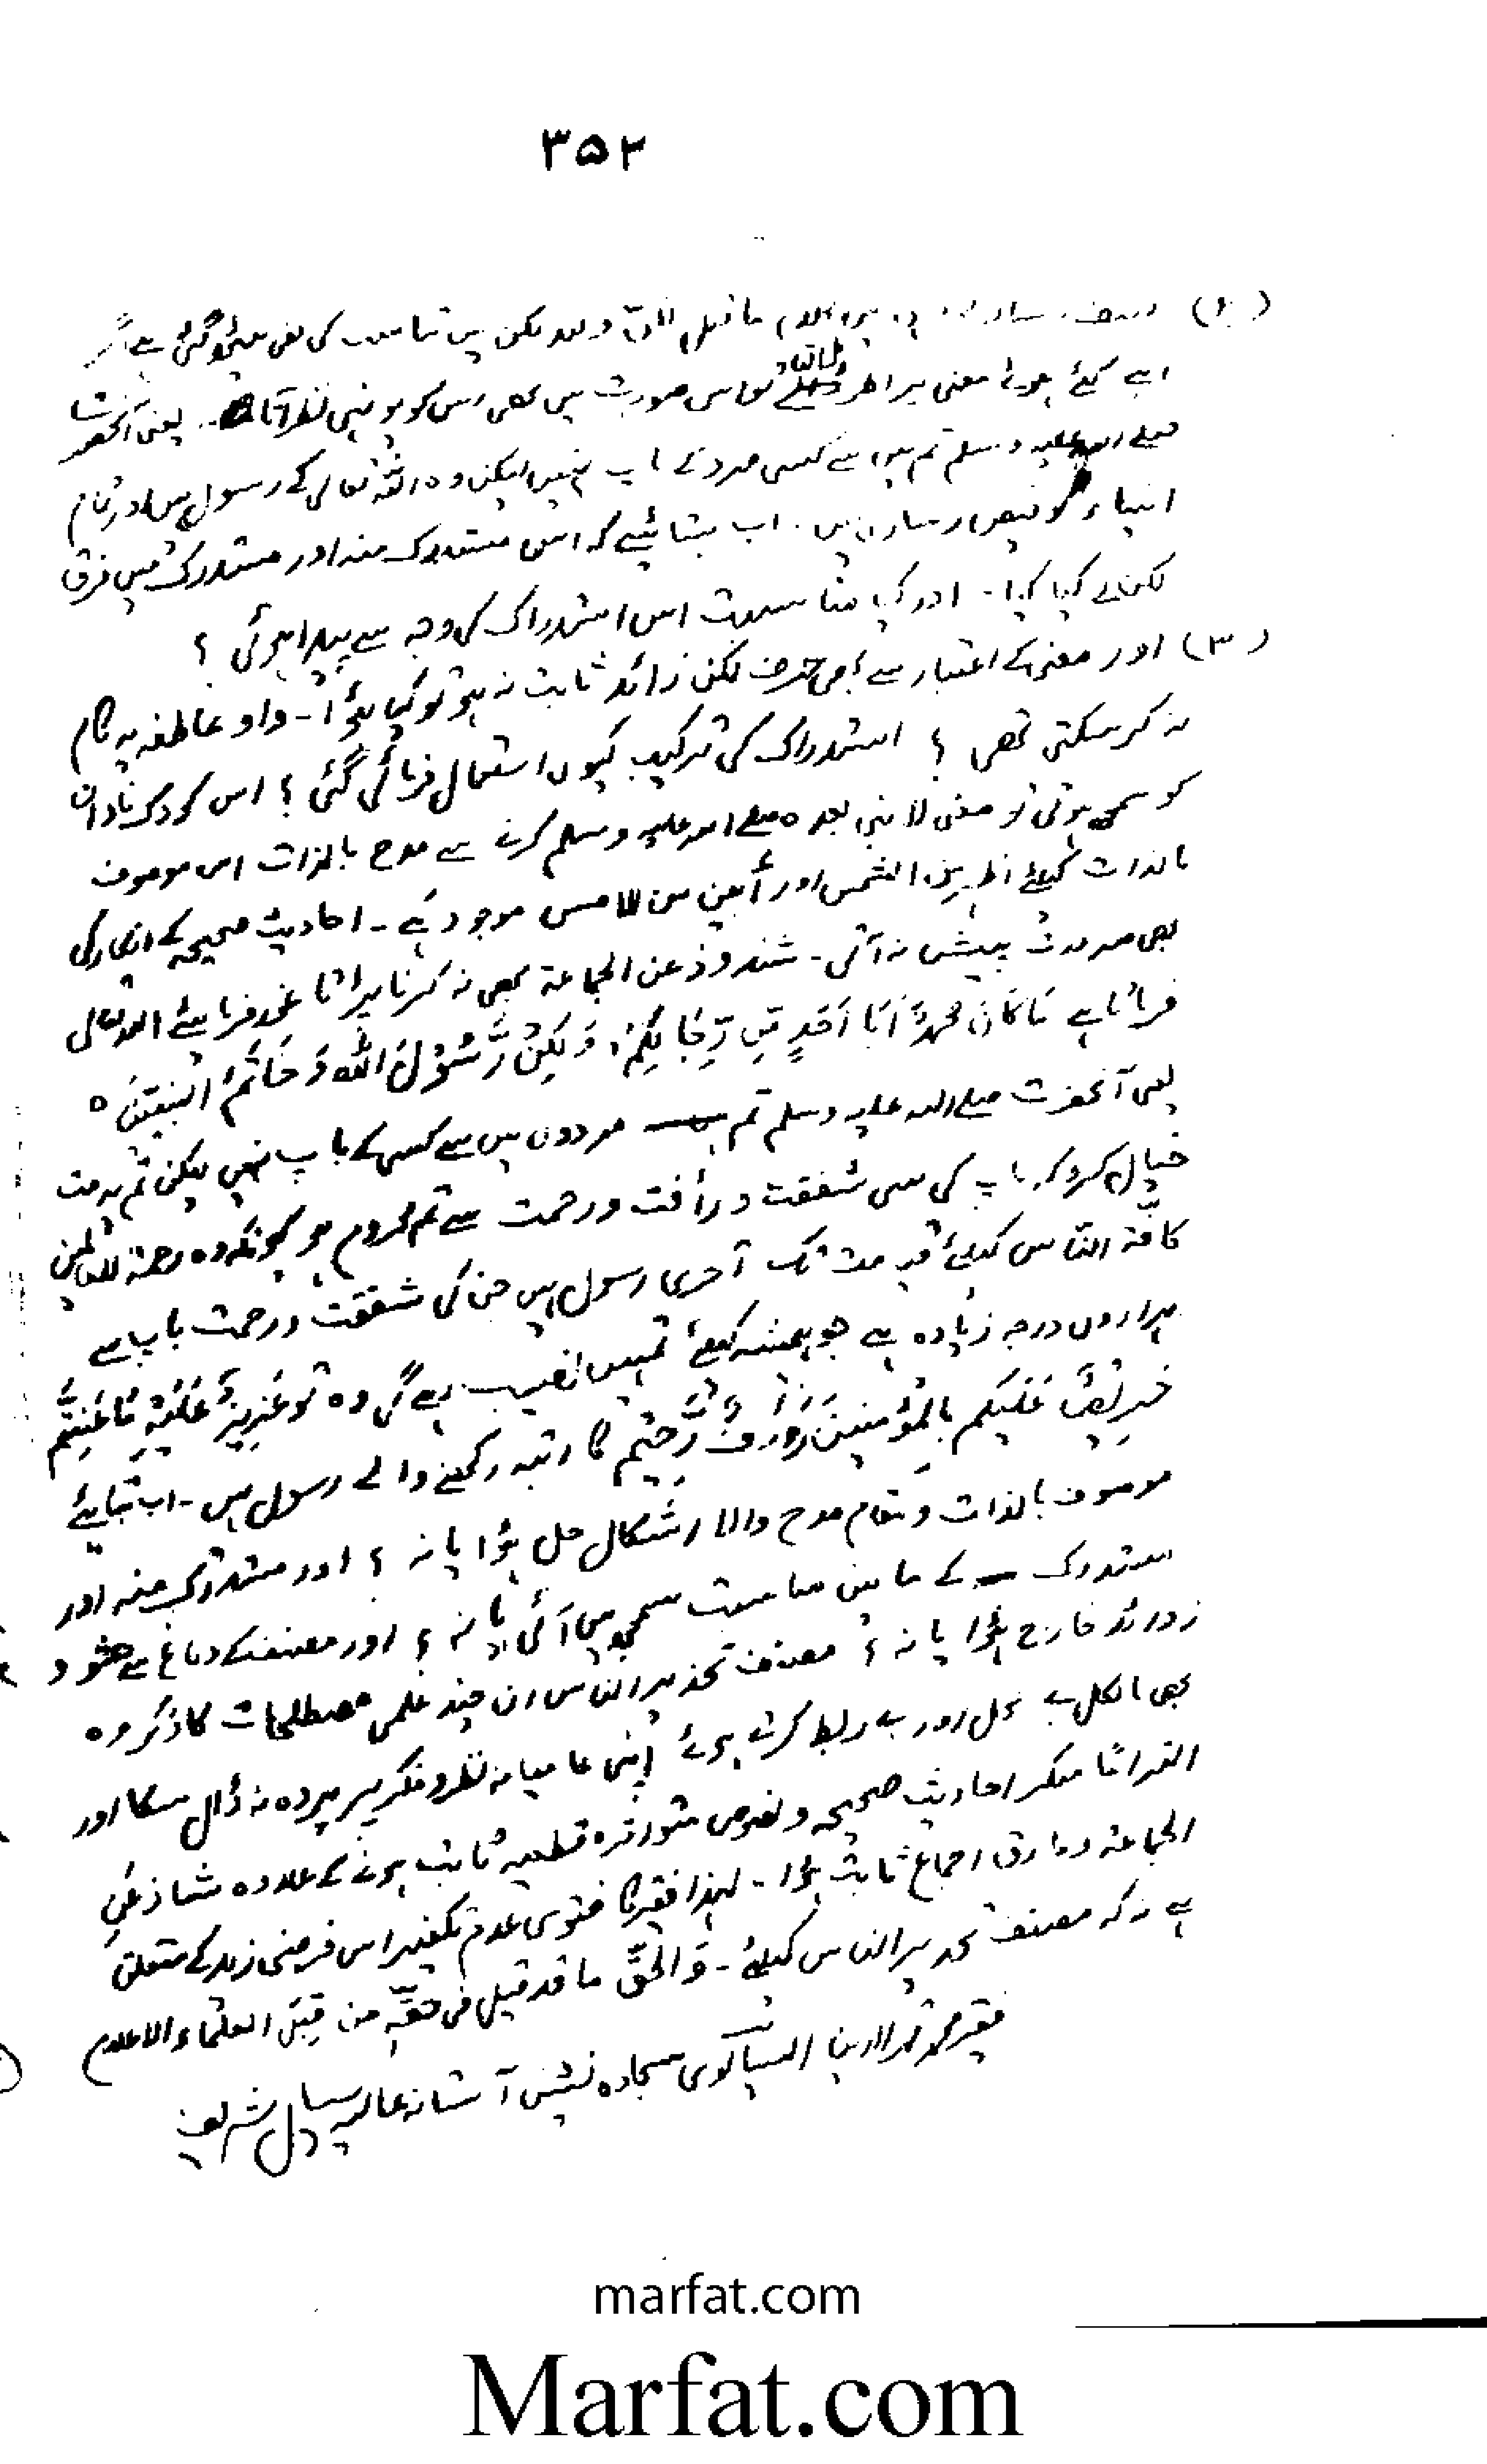 ۳۵۲
(۲) مصنف رسالہ ما قبل لکن و بعد لکن میں تناسب کی نفی
اپنے کئے ہوئے معنی پر اس صورت میں بھی اس کو نہیں نظر آتا۔ یعنی آنحضرت
صلے اللہ علیہ وسلم تم میں سے کسی مرد کے باپ نہیں لیکن وہ اللہ تعالی کے رسول ہیں اور تمام
انبیاء کو فیض رساں ہیں۔ اب بتائیے کہ اس مستدرک منہ اور مستدرک میں فرق
لکن نے کیا کیا۔ اور کیا مناسبت اس استدراک کی وجہ سے پیدا ہوئی ؟
(۳) اور معنی کے اعتبار سے بھی حرف لکن زائد ثابت نہ ہو تو کیا ہوُا۔ واو عاطفہ یہ کام
نہ کر سکتی تھی ؟ استدراک کی ترکیب کیوں استعمال فرمائی گئی ؟ اس کودک نادان
کو سمجھ ہوتی تو معنی لا نبی بعدہ صلے اللہ علیہ وسلم کرنے سے مدح بالذات اس موصوف
بالذات کیلئے اظہر من الشمس اور أبین من الامس موجود ہے۔ احادیث صحیحہ کے انکار کی
بھی ضرورت پیش نہ آتی۔ شذوذ عن الجماعة بھی نہ کرنا پڑتا غور فرمائیے اللہ تعالی
فرماتا ہے مَا كَانَ مُحَمَّدٌ اَبَا اَحَدٍ مِّن رِّجَالِكُمْ وَلٰكِنْ رَّسُوْلَ اللّٰهِ وَخَاتَمَ النَّبِيّنَ ہ
یعنی آنحضرت صلے اللہ علیہ وسلم تم مردوں میں سے کسی کے باپ نہیں لیکن تم یہ مت
خیال کرو کہ باپ کی سی شفقت و رأفت و رحمت سے تم محروم ہو کیونکہ وہ رحمة للعالمین
کافّة الناس کیلئے قیامت تک آخری رسول ہیں جن کی شفقت و رحمت باپ سے
ہزاروں درجہ زیادہ ہے جو ہمیشہ کیلئے تمہیں نصیب رہے گی وہ تو عَزِیْزٌ عَلَیْهِ مَا عَنِتُّمْ
حَرِیْصٌ عَلَیْکُم بِالْمُؤْمِنِیْنَ رَؤُوْفٌ رَّحِیْم کا رتبہ رکھنے والے رسول ہیں۔ اب بتائیے
موصوف بالذات و مقام مدح والا اشکال حل ہؤا یا نہ ؟ اور مستدرک منہ اور
مستدرک کے مابین مناسبت سمجھ میں آئی یا نہ ؟ اور مصنف کے دماغ سے حشو و
زوائد خارج ہؤا یا نہ ؟ مصنف تحذیر الناس ان چند علمی مصطلحات کا ذکر وہ
بھی بالکل بے محل اور بے ربط کرتے ہوئے اپنی عامیانہ نظر و فکر پر پردہ نہ ڈال سکا اور
التزاما منکر احادیث صحیحہ و نصوص متواترہ قطعیہ ثابت ہونے کے علاوہ شاذ عن
الجماعة و فارق اجماع ثابت ہؤا۔ لہذا فقیر کا فتوی عدم تکفیر اس فرضی زید کے متعلق
ہے نہ کہ مصنف تحذیر الناس کیلئے۔ وَالحَقُّ ما قد قیل فی حقّہ من قِبَل العلماء الاعلام
فقیر محمد قمر الدین السیالوی سجادہ نشین آستانہ عالیہ سیال شریف
marfat.com
Marfat.com